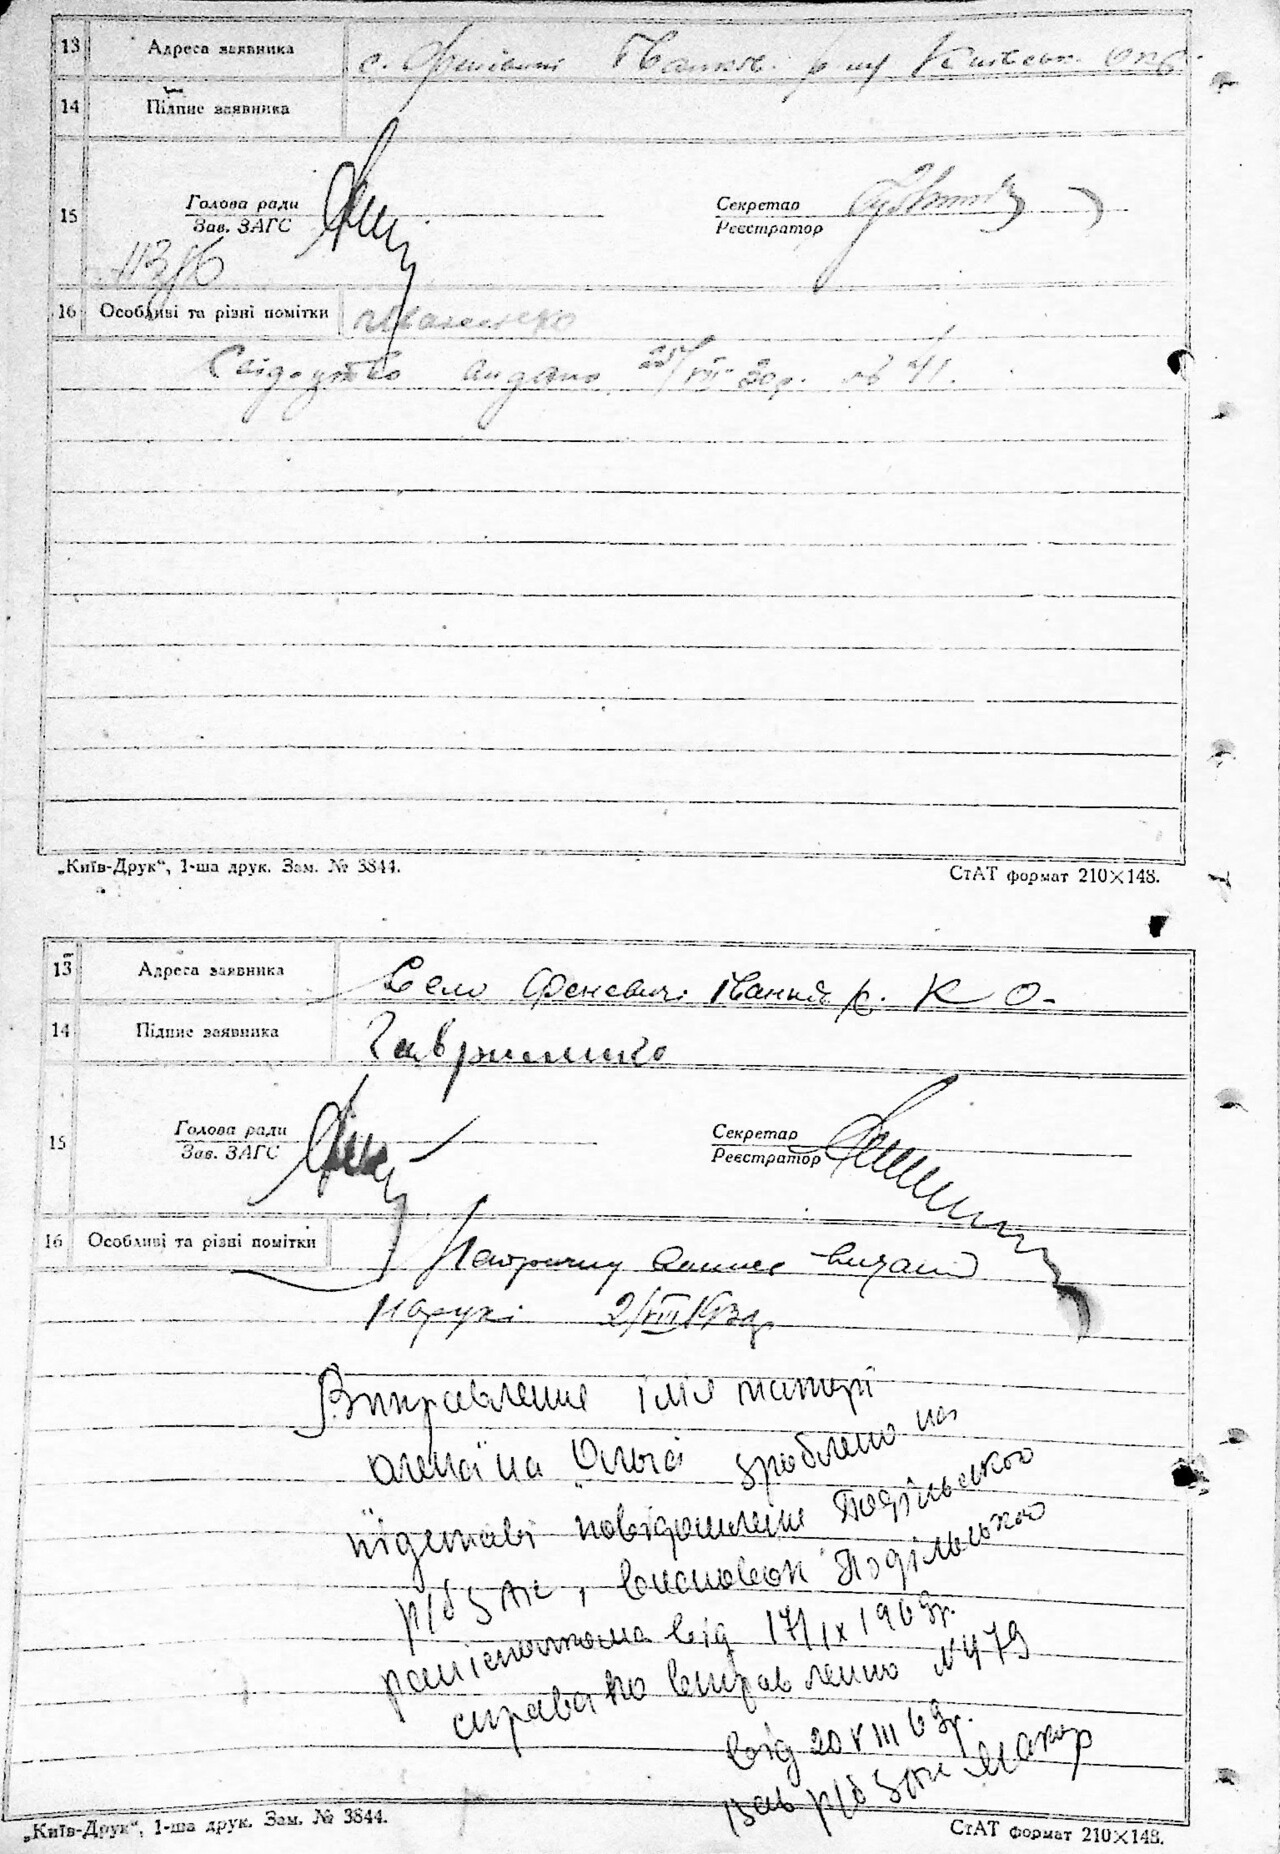 13 Адреса заявника с. Феневичі Іванків. р-ну Київськ. окр.
14 Підпис заявника
15 Голова ради
Зав. ЗАГС
Секретар
Реєстратор
16 Особливі та різні помітки
Свідоцтво видано 25/VII-30р. № 41.
„Київ-Друк“, 1-ша друк. Зам. № 3844.
СтАТ формат 210×148.
13 Адреса заявника Село Феневичі Іванків р. К О-
14 Підпис заявника Гавриленко
15 Голова ради
Зав. ЗАГС
Секретар
Реєстратор
16 Особливі та різні помітки видано
на руки 2/VIII 193
Виправлення імя матері
Олена на "Ольга" зроблено на
підставі повідомлення Подільського
р/б ЗАГС, висновок Подільського
райісполкома від 17/IX 1969р.
справа по виправленню № 479
від 20 VIII 69р.
Зав р/б ЗАГС
„Київ-Друк“, 1-ша друк. Зам. № 3844.
СтАТ формат 210×148.